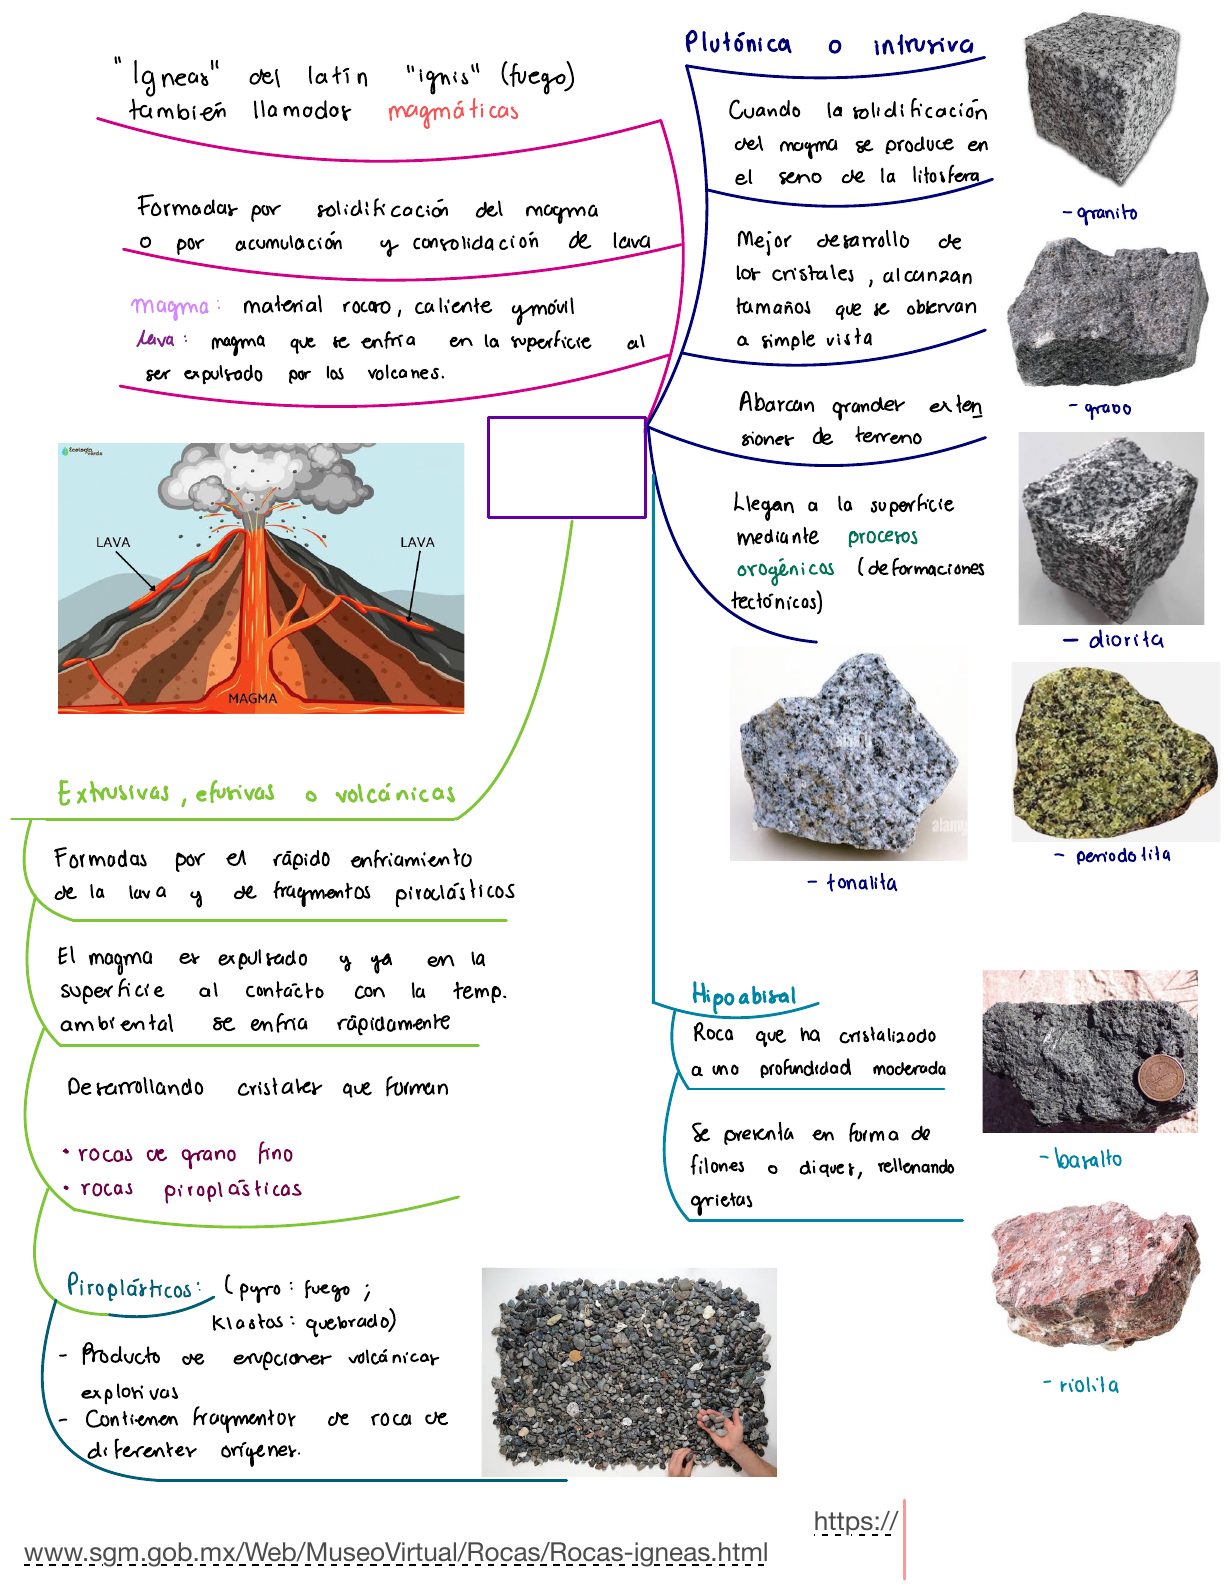 "Igneas" del latín "ignis" (fuego)
también llamadas magmáticas
Formadas por solidificación del magma
o por acumulación y consolidación de lava
magma: material rocoso, caliente y móvil
lava: magma que se enfría en la superficie al
ser expulsado por los volcanes.
Ecología
verde
LAVA
LAVA
MAGMA
Extrusivas, efusivas o volcánicas
Formadas por el rápido enfriamiento
de la lava y de fragmentos piroclásticos
El magma es expulsado y ya en la
superficie al contacto con la temp.
ambiental se enfría rápidamente
Desarrollando cristales que forman
• rocas de grano fino
• rocas piroplásticas
Piroplásticos: (pyro: fuego ;
Klastos: quebrado)
- Producto de erupciones volcánicas
explosivas
- Contienen fragmentos de roca de
diferentes orígenes.
Plutónica o intrusiva
Cuando la solidificación
del magma se produce en
el seno de la litosfera
Mejor desarrollo de
los cristales, alcanzan
tamaños que se observan
a simple vista
Abarcan grandes exten
siones de terreno
Llegan a la superficie
mediante procesos
orogénicos (deformaciones
tectónicas)
- granito
- grabo
- diorita
alamy
alamy
- tonalita
- periodotita
Hipoabisal
Roca que ha cristalizado
a una profundidad moderada
Se presenta en forma de
filones o diques, rellenando
grietas
- basalto
- riolita
https://
www.sgm.gob.mx/Web/MuseoVirtual/Rocas/Rocas-igneas.html